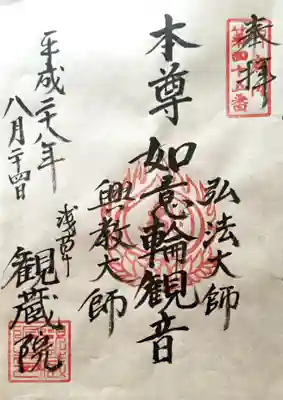 奉拝
第四十五番
本尊 如意輪観音
弘法大師
興教大師
浅草 観蔵院
平成二十八年
八月二十四日